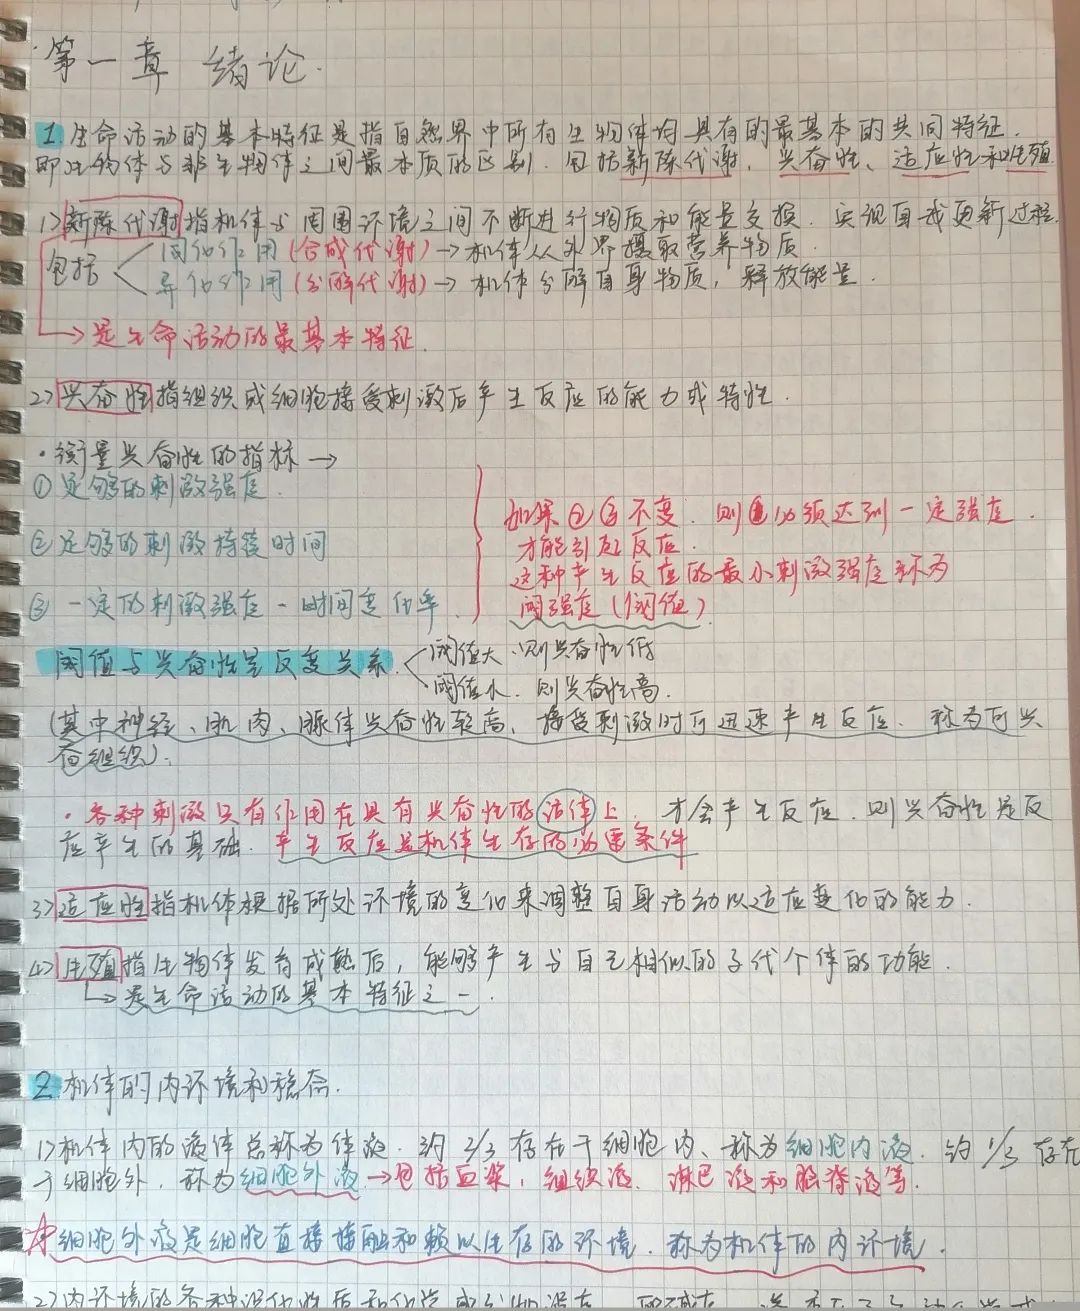 第一章 绪论.
1. 生命活动的基本特征是指自然界中所有生物体均具有的最基本的共同特征.
即生物体与非生物体之间最本质的区别. 包括新陈代谢, 兴奋性、适应性和生殖
1>新陈代谢指机体与周围环境之间不断进行物质和能量交换. 实现自我更新过程.
包括
同化作用(合成代谢)→机体从外界摄取营养物质.
异化作用(分解代谢)→机体分解自身物质, 释放能量.
→是生命活动的最基本特征.
2>兴奋性指组织或细胞接受刺激后产生反应的能力或特性.
·衡量兴奋性的指标→
①足够的刺激强度.
②足够的刺激持续时间
③一定的刺激强度-时间变化率.
如果②③不变. 则①必须达到一定强度.
才能引起反应.
这种产生反应的最小刺激强度称为
阈强度(阈值)
阈值与兴奋性呈反变关系.
阈值大.则兴奋性低
阈值小. 则兴奋性高.
(其中神经、肌肉、腺体兴奋性较高、接受刺激时可迅速产生反应. 称为可兴
奋组织).
·各种刺激只有作用在具有兴奋性的活体上, 才会产生反应. 则兴奋性是反
应产生的基础. 产生反应是机体生存的必要条件
3>适应性指机体根据所处环境的变化来调整自身活动以适应变化的能力.
4>生殖指生物体发育成熟后, 能够产生与自己相似的子代个体的功能.
→是生命活动的基本特征之一.
2 机体的内环境和稳态.
1>机体内的液体总称为体液. 约2/3存在于细胞内、称为细胞内液. 约1/3存在
于细胞外, 称为细胞外液→包括血浆, 组织液. 淋巴液和脑脊液等.
☆细胞外液是细胞直接接触和赖以生存的环境. 称为机体的内环境.
2>内环境的各种理化性质和化学成分